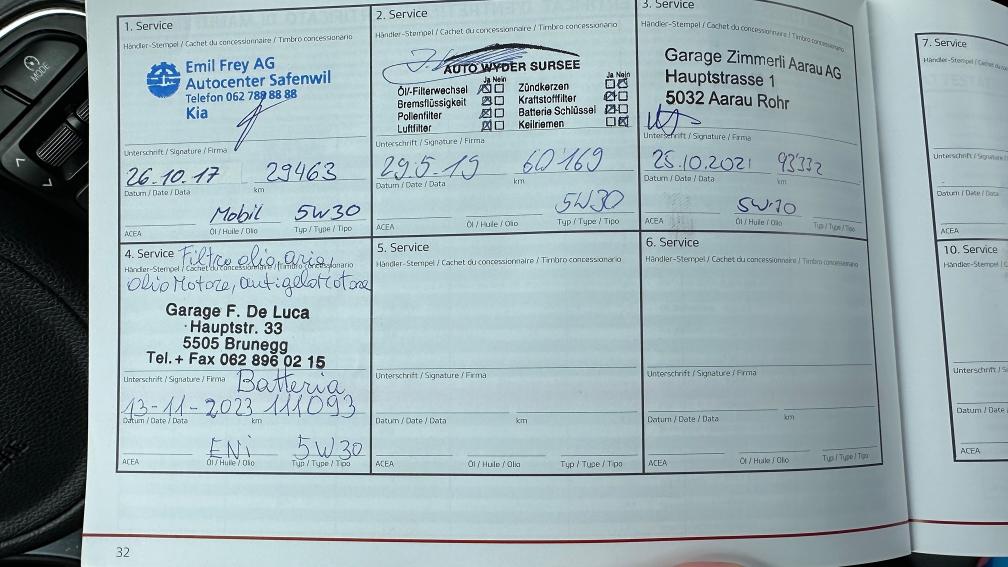 MODE
1. Service
Händler-Stempel / Cachet du concessionnaire / Timbro concessionario
Emil Frey AG
Autocenter Safenwil
Telefon 062 788 88 88
Kia
Unterschrift / Signature / Firma
26.10.17 29463
Datum / Date / Data km
Mobil 5W30
ACEA Öl / Huile / Olio Typ / Type / Tipo
2. Service
Händler-Stempel / Cachet du concessionnaire / Timbro concessionario
AUTO WYDER SURSEE
Ja Nein Ja Nein
Öl/-Filterwechsel Zündkerzen
Bremsflüssigkeit Kraftstofffilter
Pollenfilter Batterie Schlüssel
Luftfilter Keilriemen
Unterschrift / Signature / Firma
29.5.19 60'169
Datum / Date / Data km
5W30
ACEA Öl / Huile / Olio Typ / Type / Tipo
3. Service
Händler-Stempel / Cachet du concessionnaire / Timbro concessionario
Garage Zimmerli Aarau AG
Hauptstrasse 1
5032 Aarau Rohr
Unterschrift / Signature / Firma
25.10.2021 93'332
Datum / Date / Data km
5W30
ACEA Öl / Huile / Olio Typ / Type / Tipo
4. Service Filtro olio, aria,
Händler-Stempel / Cachet du concessionnaire / Timbro concessionario
Olio Motore, antigelo Motore
Garage F. De Luca
Hauptstr. 33
5505 Brunegg
Tel. + Fax 062 896 02 15
Unterschrift / Signature / Firma Batteria
13-11-2023 111093
Datum / Date / Data km
ENi 5W30
ACEA Öl / Huile / Olio Typ / Type / Tipo
5. Service
Händler-Stempel / Cachet du concessionnaire / Timbro concessionario
Unterschrift / Signature / Firma
Datum / Date / Data km
ACEA Öl / Huile / Olio Typ / Type / Tipo
6. Service
Händler-Stempel / Cachet du concessionnaire / Timbro concessionario
Unterschrift / Signature / Firma
Datum / Date / Data km
ACEA Öl / Huile / Olio Typ / Type / Tipo
32
7. Service
Händler-Stempel / Cachet du
Unterschrift / Si
Datum / Date / Data
ACEA
10. Service
Händler-Stempel / C
Unterschrift / S
Datum / Date /
ACEA